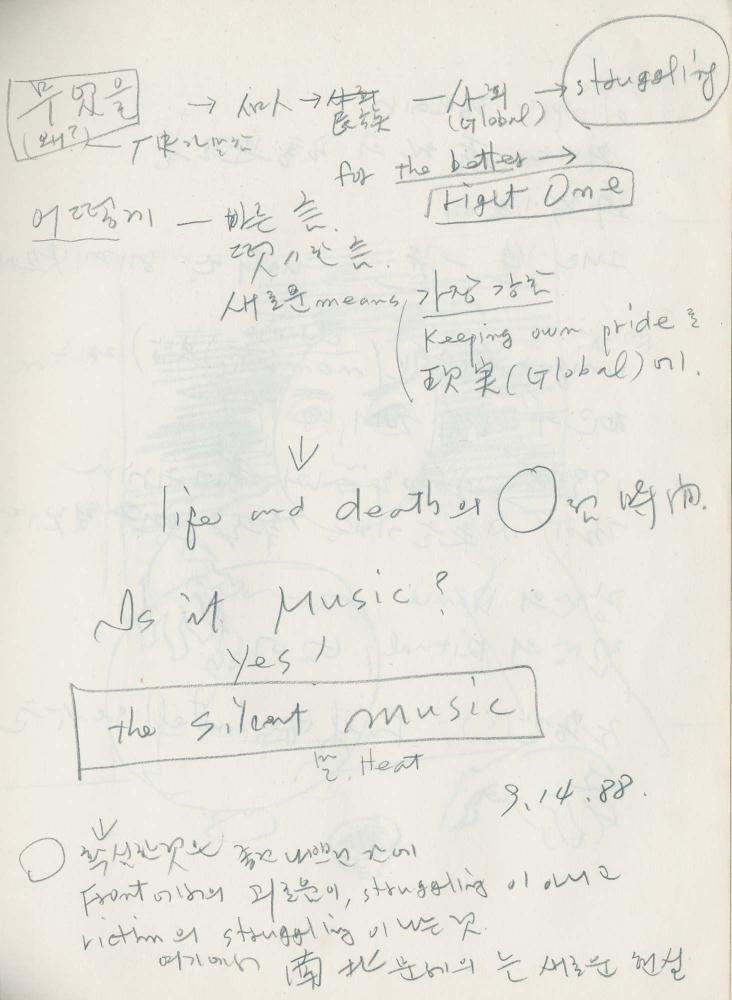 무엇을 → 개인 → 사회 — 사회 → struggling
(왜?) 民族 (Global)
for the better →
right One
어떻게 — 바른 음.
떳떳한 음.
새로운 means 가장 강한
Keeping own pride 를
現実 (Global) 에.
↓
life and death의 ○ 時間.
Is it Music?
Yes!
the silent music
Heat
9.14.88.
↓
○ 확실한 것은 좋건 나쁘건 간에
Front에서의 괴로움이, struggling 이 아니고
victim의 struggling 이라는 것.
여기에서 南北 문제의 새로운 현실